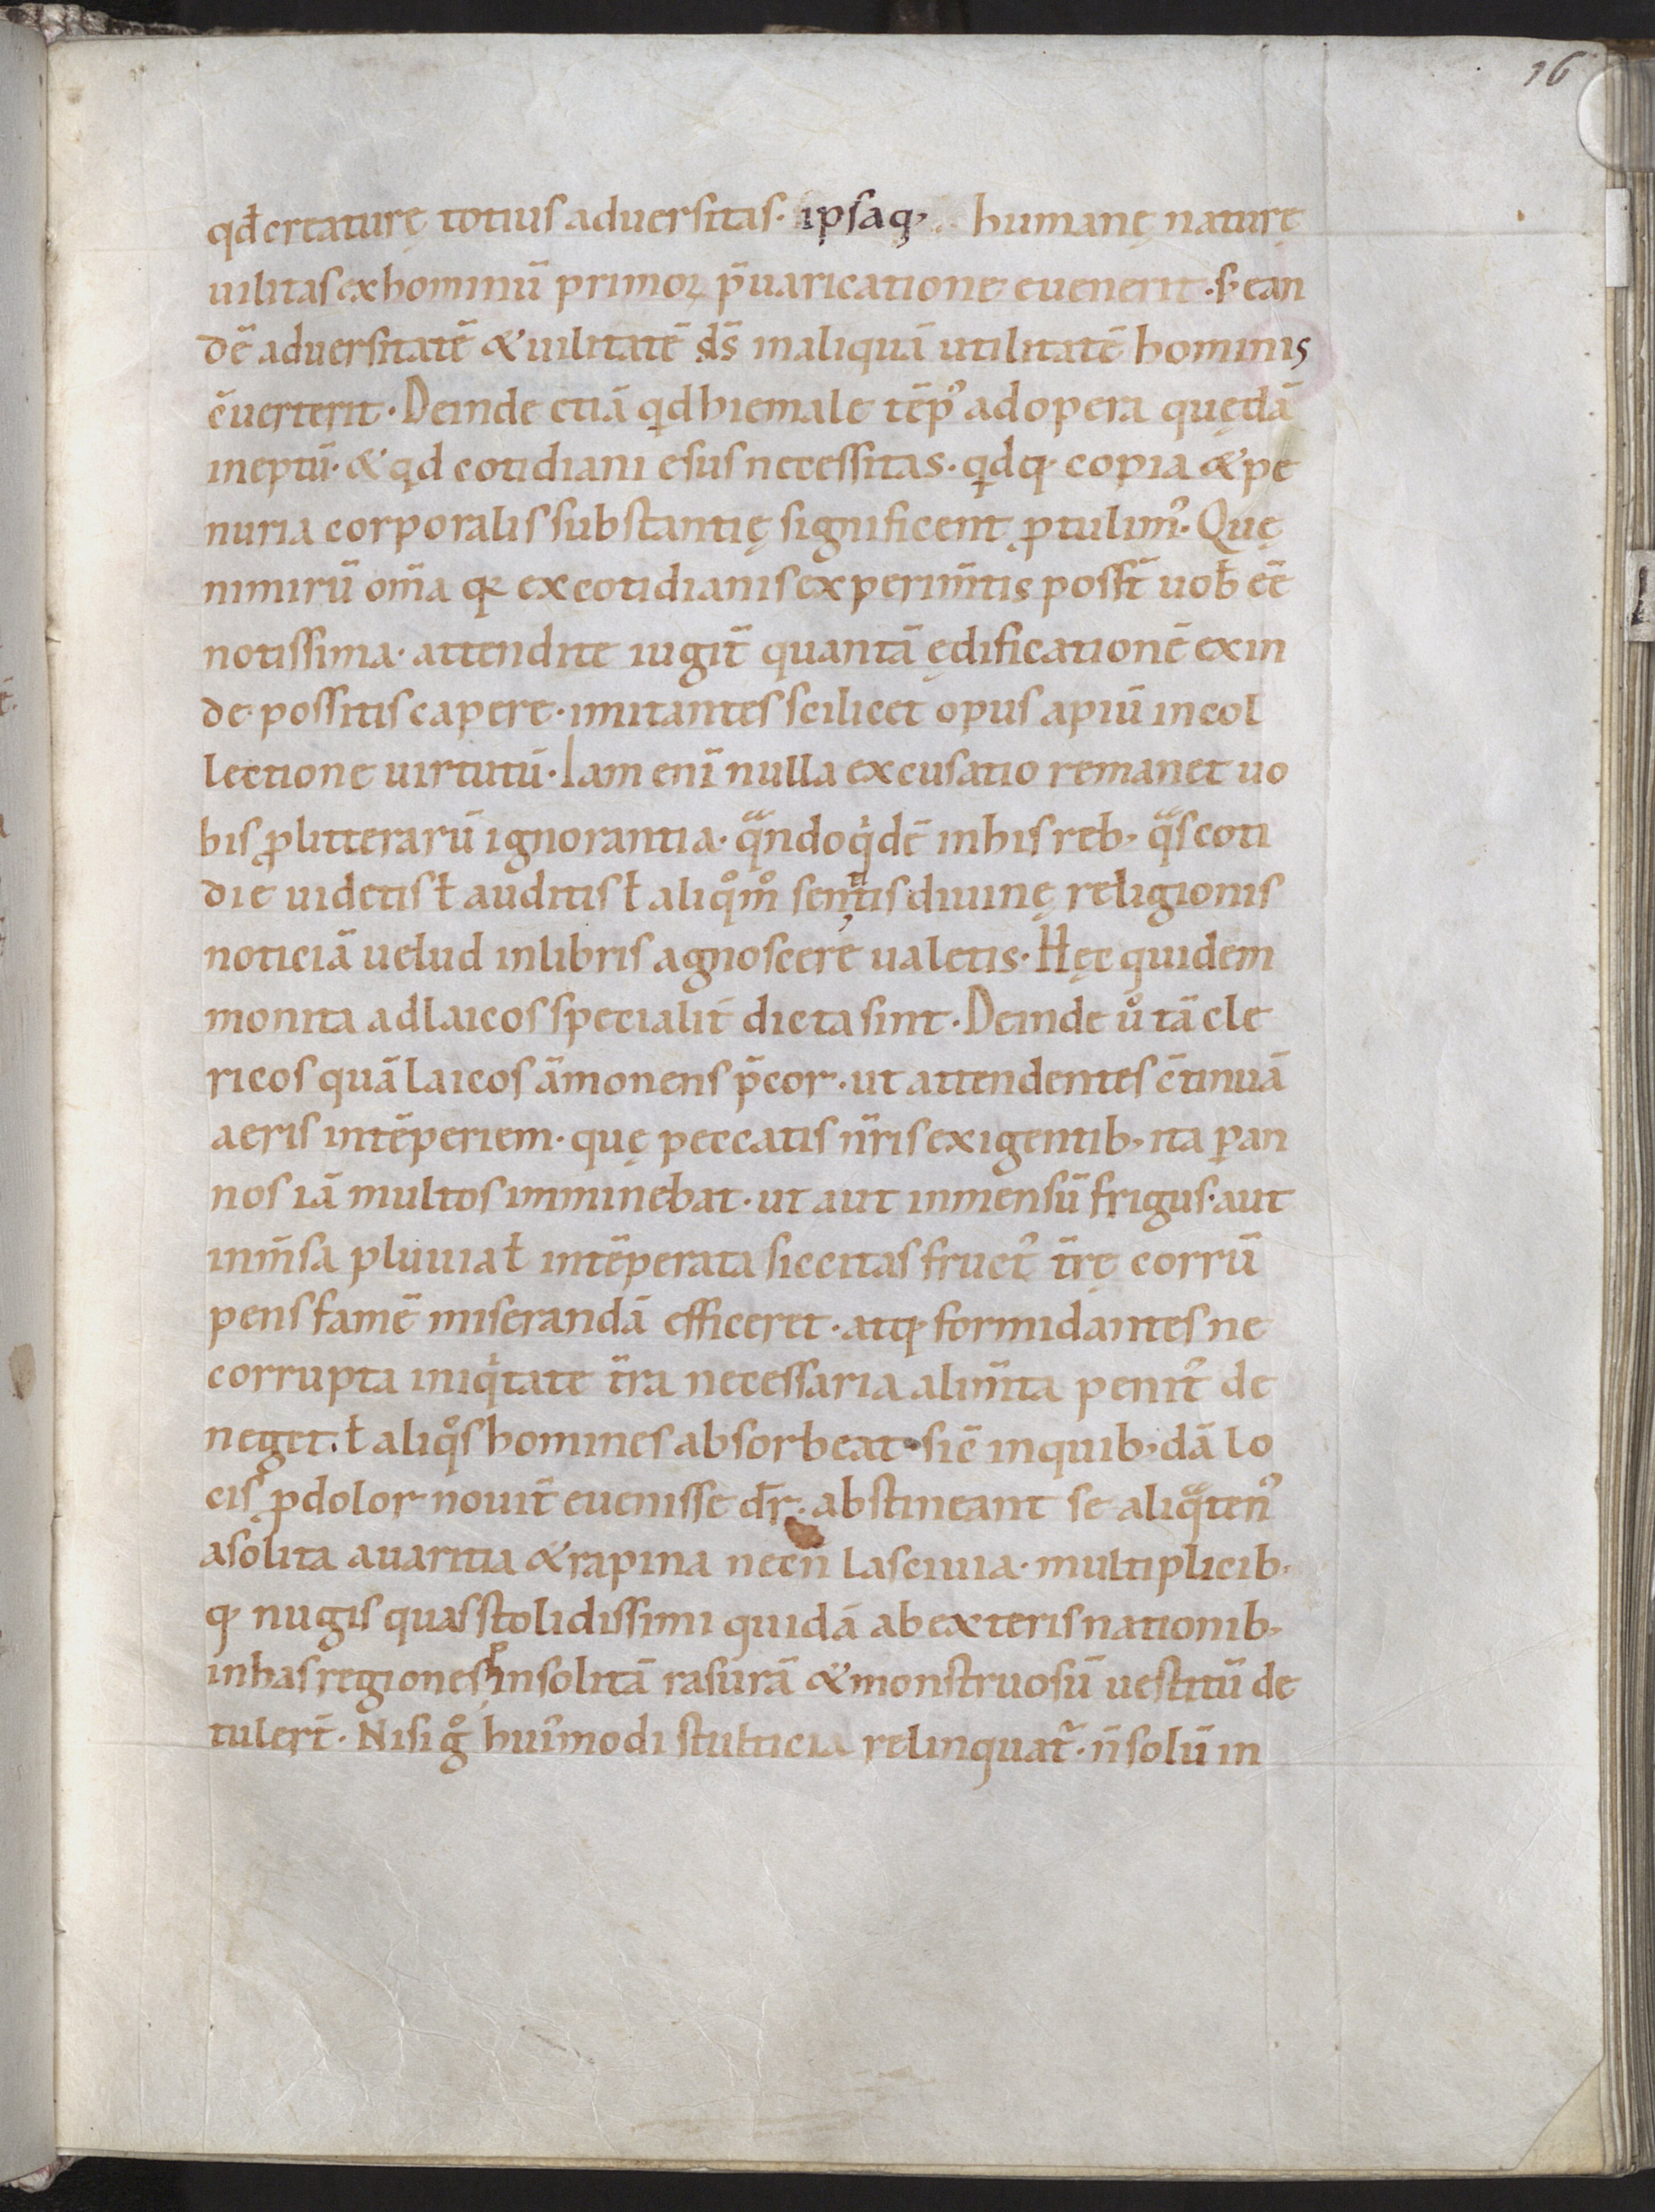 16
qđ creaturę totius aduersitas · ipsaq; humanę naturę
uilitas ex hominū primoꝝ p̄uaricatione euenerit · s; ean
dē aduersitatē & uilitatē ds̄ in aliquā utilitatē hominis
c̄uerterit · Deinde etiā qd hiemale tēp᾿ ad opera quędā
ineptū · & qd cotidiani esus necessitas · qdq; copia & pe
nuria corporalis substantię significent ꝓtulim᾿ · Quę
nimirū om̄a q̄ ex cotidianis experim̄tis possr̄t uob̄ eē
notissima · attendite iugit̄ quantā ędificationē exin
de possitis capere · imitantes scilicet opus apiū in col
lectione uirtutū · Iam eni nulla excusatio remanet uo
bis ꝓ litterarū ignorantia · qᵃndoqⁱdē in his reb; qᵃs coti
die uidetis ł auditis ł aliqºmº sentitis diuinę religionis
noticiā uelud in libris agnoscere ualetis · Hęc quidem
monita ad laicos specialit̄ dicta sint · Deinde uº tā cle
ricos quā laicos āmonens p̄cor · ut attendentes c̄tinuā
aeris intēperiem · quę peccatis nr̄is exigentib; ita ꝑ an
nos iā multos imminebat · ut aut inmensū frigus · aut
inm̄sa pluuia ł intēperata siccitas fruct᾿ tr̄ę corrū
pens famē miserandā efficeret · atq; formidantes ne
corrupta iniqⁱtate tr̄a necessaria alim̄ta penit᾿ de
neget · ł aliqºs homines absorbeat · sic̄ in quib;dā lo
cis ꝓdolor nouit̄ euenisse dr̄ · abstineant se aliqᵃten᾿
a solita auaritia & rapina necn̄ lasciuia · multiplicib;
q; nugis quas stolidissimi quidā ab exteris nationib;
in has regiones ꝑ insolitā rasurā & monstruosū uestitū de
tuler̄t · Nisi gº hui᾿modi stulticia relinquat᾿ · n̄ solū in